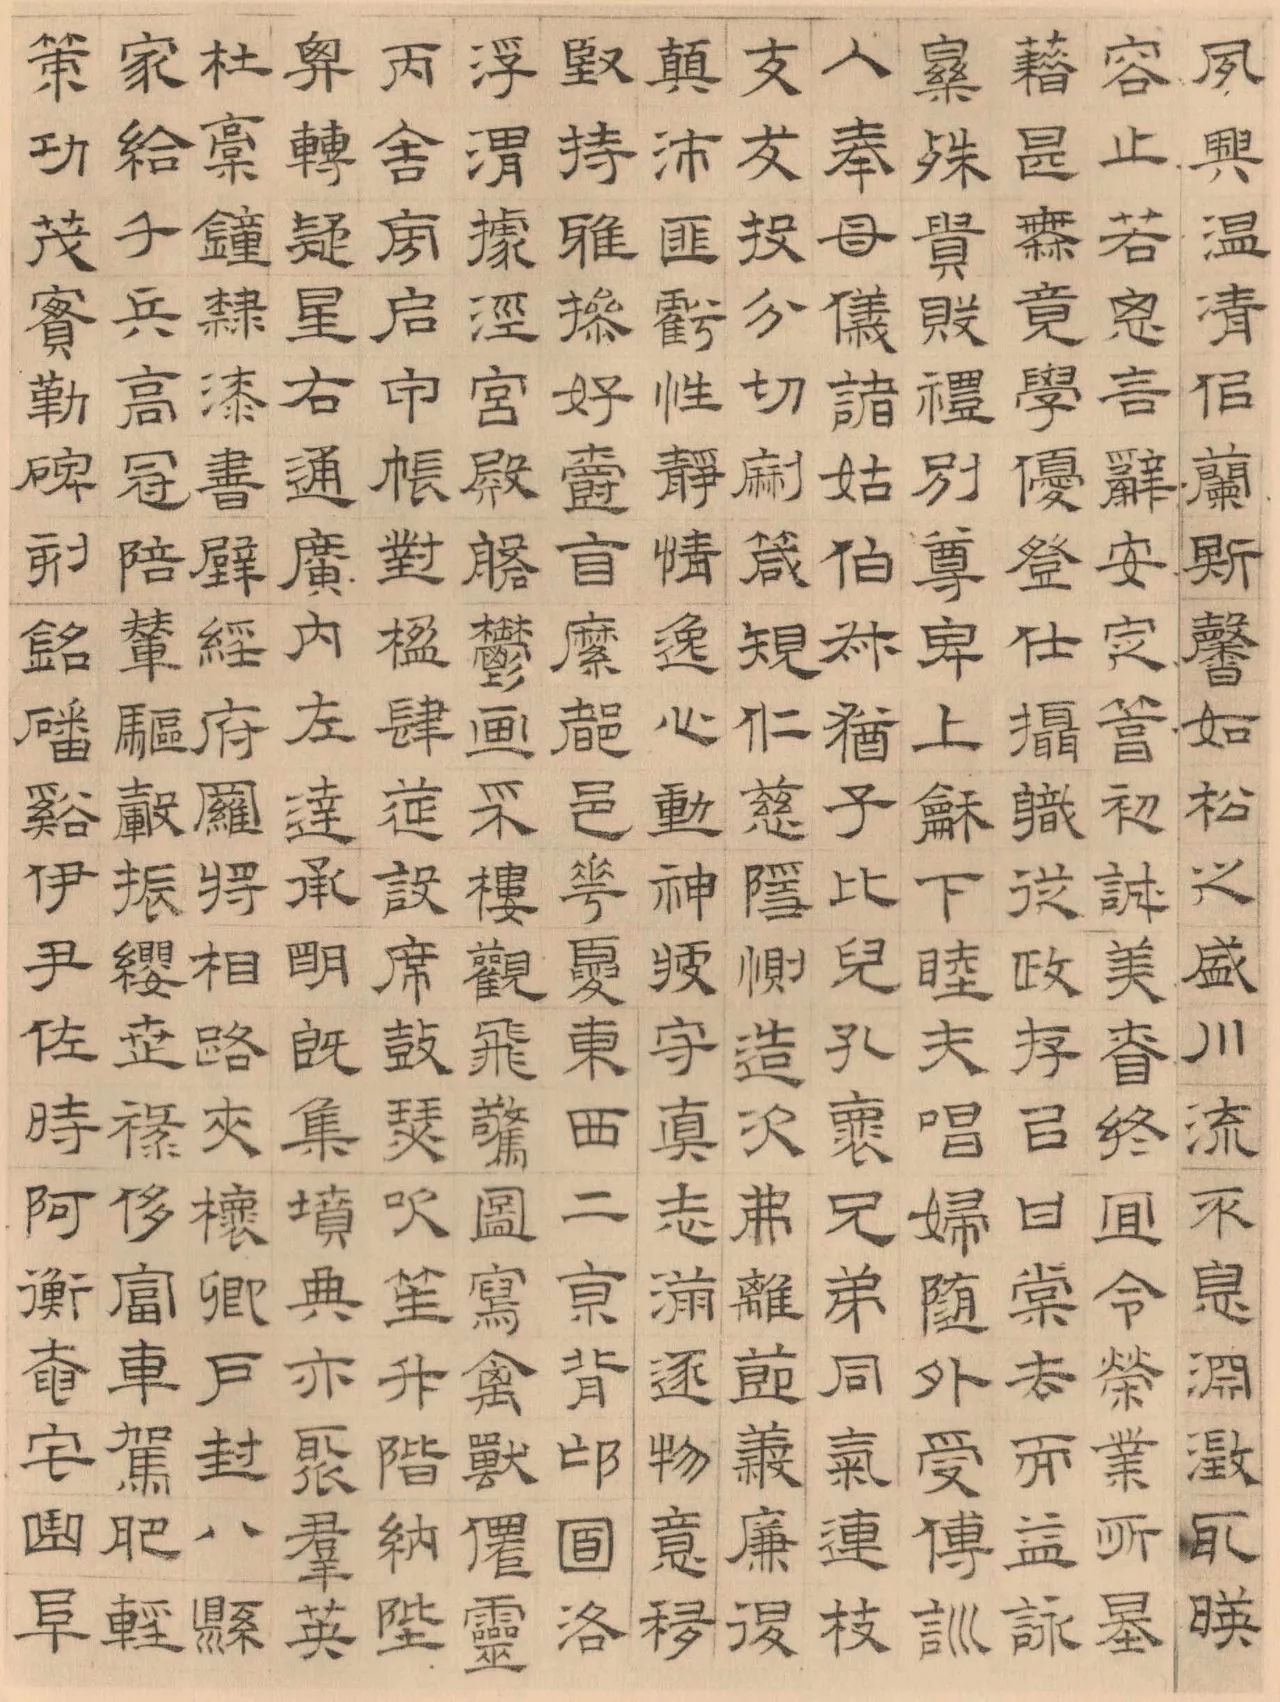 夙興温清佀蘭斯馨如松之盛川流不息淵澂取暎
容止若思言辭安定篤初誠美眘終宜令榮業所基
藉甚無竟學優登仕攝職從政存㠯甘棠去而益詠
樂殊貴賤禮別尊卑上龢下睦夫唱婦随外受傅訓
入奉母儀諸姑伯叔猶子比兒孔褱兄弟同氣連枝
交友投分切劘箴規仁慈隱惻造次弗離節義廉退
顛沛匪虧性靜情逸心動神疲守真志滿逐物意移
堅持雅操好爵自縻都邑華夏東西二京背邙面洛
浮渭據涇宮殿盤鬱画采樓觀飛驚圖寫禽獸僊靈
丙舍㫄启甲帳對楹肆筵設席鼓瑟吹笙升階納陛
弁轉疑星右通廣内左達承明既集墳典亦聚羣英
杜稾鐘隸漆書壁經府羅將相路夾櫰卿戶封八縣
家給千兵高冠陪輦驅轂振纓世祿侈富車駕肥輕
策功茂實勒碑刻銘磻谿伊尹佐時阿衡奄宅曲阜